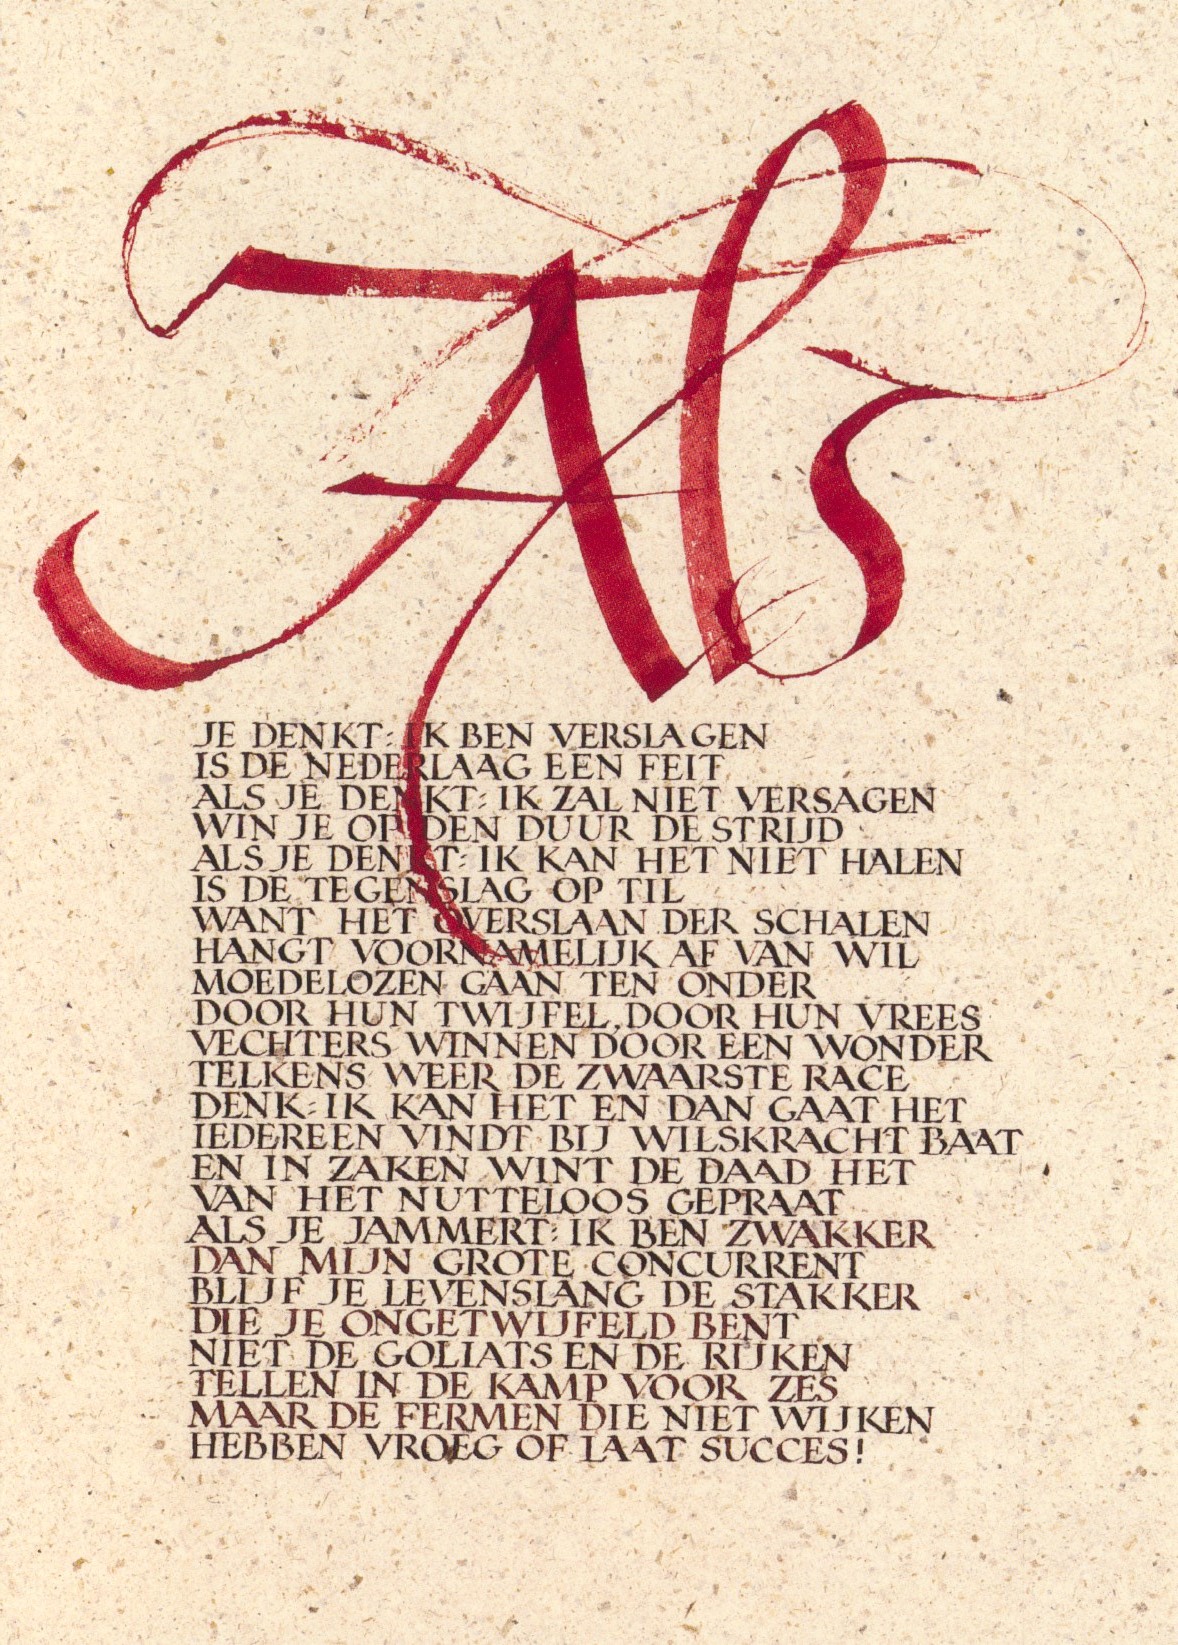 Als
JE DENKT: IK BEN VERSLAGEN
IS DE NEDERLAAG EEN FEIT
ALS JE DENKT: IK ZAL NIET VERSAGEN
WIN JE OP DEN DUUR DE STRIJD
ALS JE DENKT: IK KAN HET NIET HALEN
IS DE TEGENSLAG OP TIL
WANT HET OVERSLAAN DER SCHALEN
HANGT VOORNAMELIJK AF VAN WIL
MOEDELOZEN GAAN TEN ONDER
DOOR HUN TWIJFEL, DOOR HUN VREES
VECHTERS WINNEN DOOR EEN WONDER
TELKENS WEER DE ZWAARSTE RACE
DENK: IK KAN HET EN DAN GAAT HET
IEDEREEN VINDT BIJ WILSKRACHT BAAT
EN IN ZAKEN WINT DE DAAD HET
VAN HET NUTTELOOS GEPRAAT
ALS JE JAMMERT: IK BEN ZWAKKER
DAN MIJN GROTE CONCURRENT
BLIJF JE LEVENSLANG DE STAKKER
DIE JE ONGETWIJFELD BENT
NIET DE GOLIATS EN DE RIJKEN
TELLEN IN DE KAMP VOOR ZES
MAAR DE FERMEN DIE NIET WIJKEN
HEBBEN VROEG OF LAAT SUCCES!